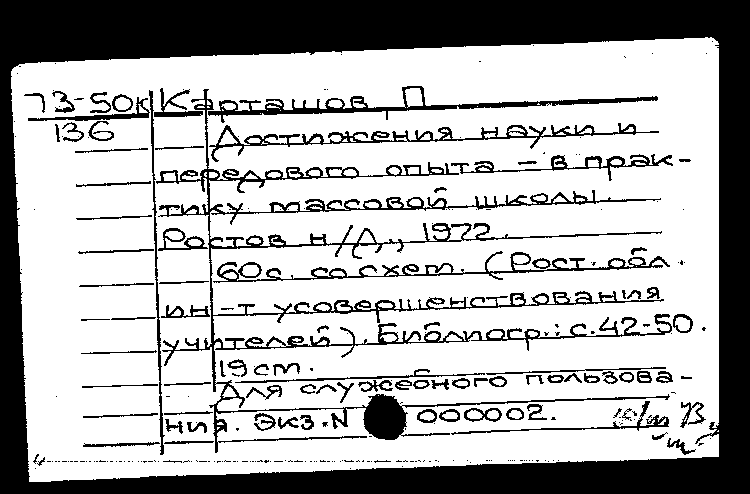 73-50к Карташов, П
136
Достижения науки и
передового опыта - в прак-
тику массовой школы.
Ростов н/Д., 1972.
60с. со схем. (Рост. обл.
ин-т усовершенствования
учителей). Библиогр.: с.42-50.
19 cm.
Для служебного пользова-
ния. Экз.N 000002.